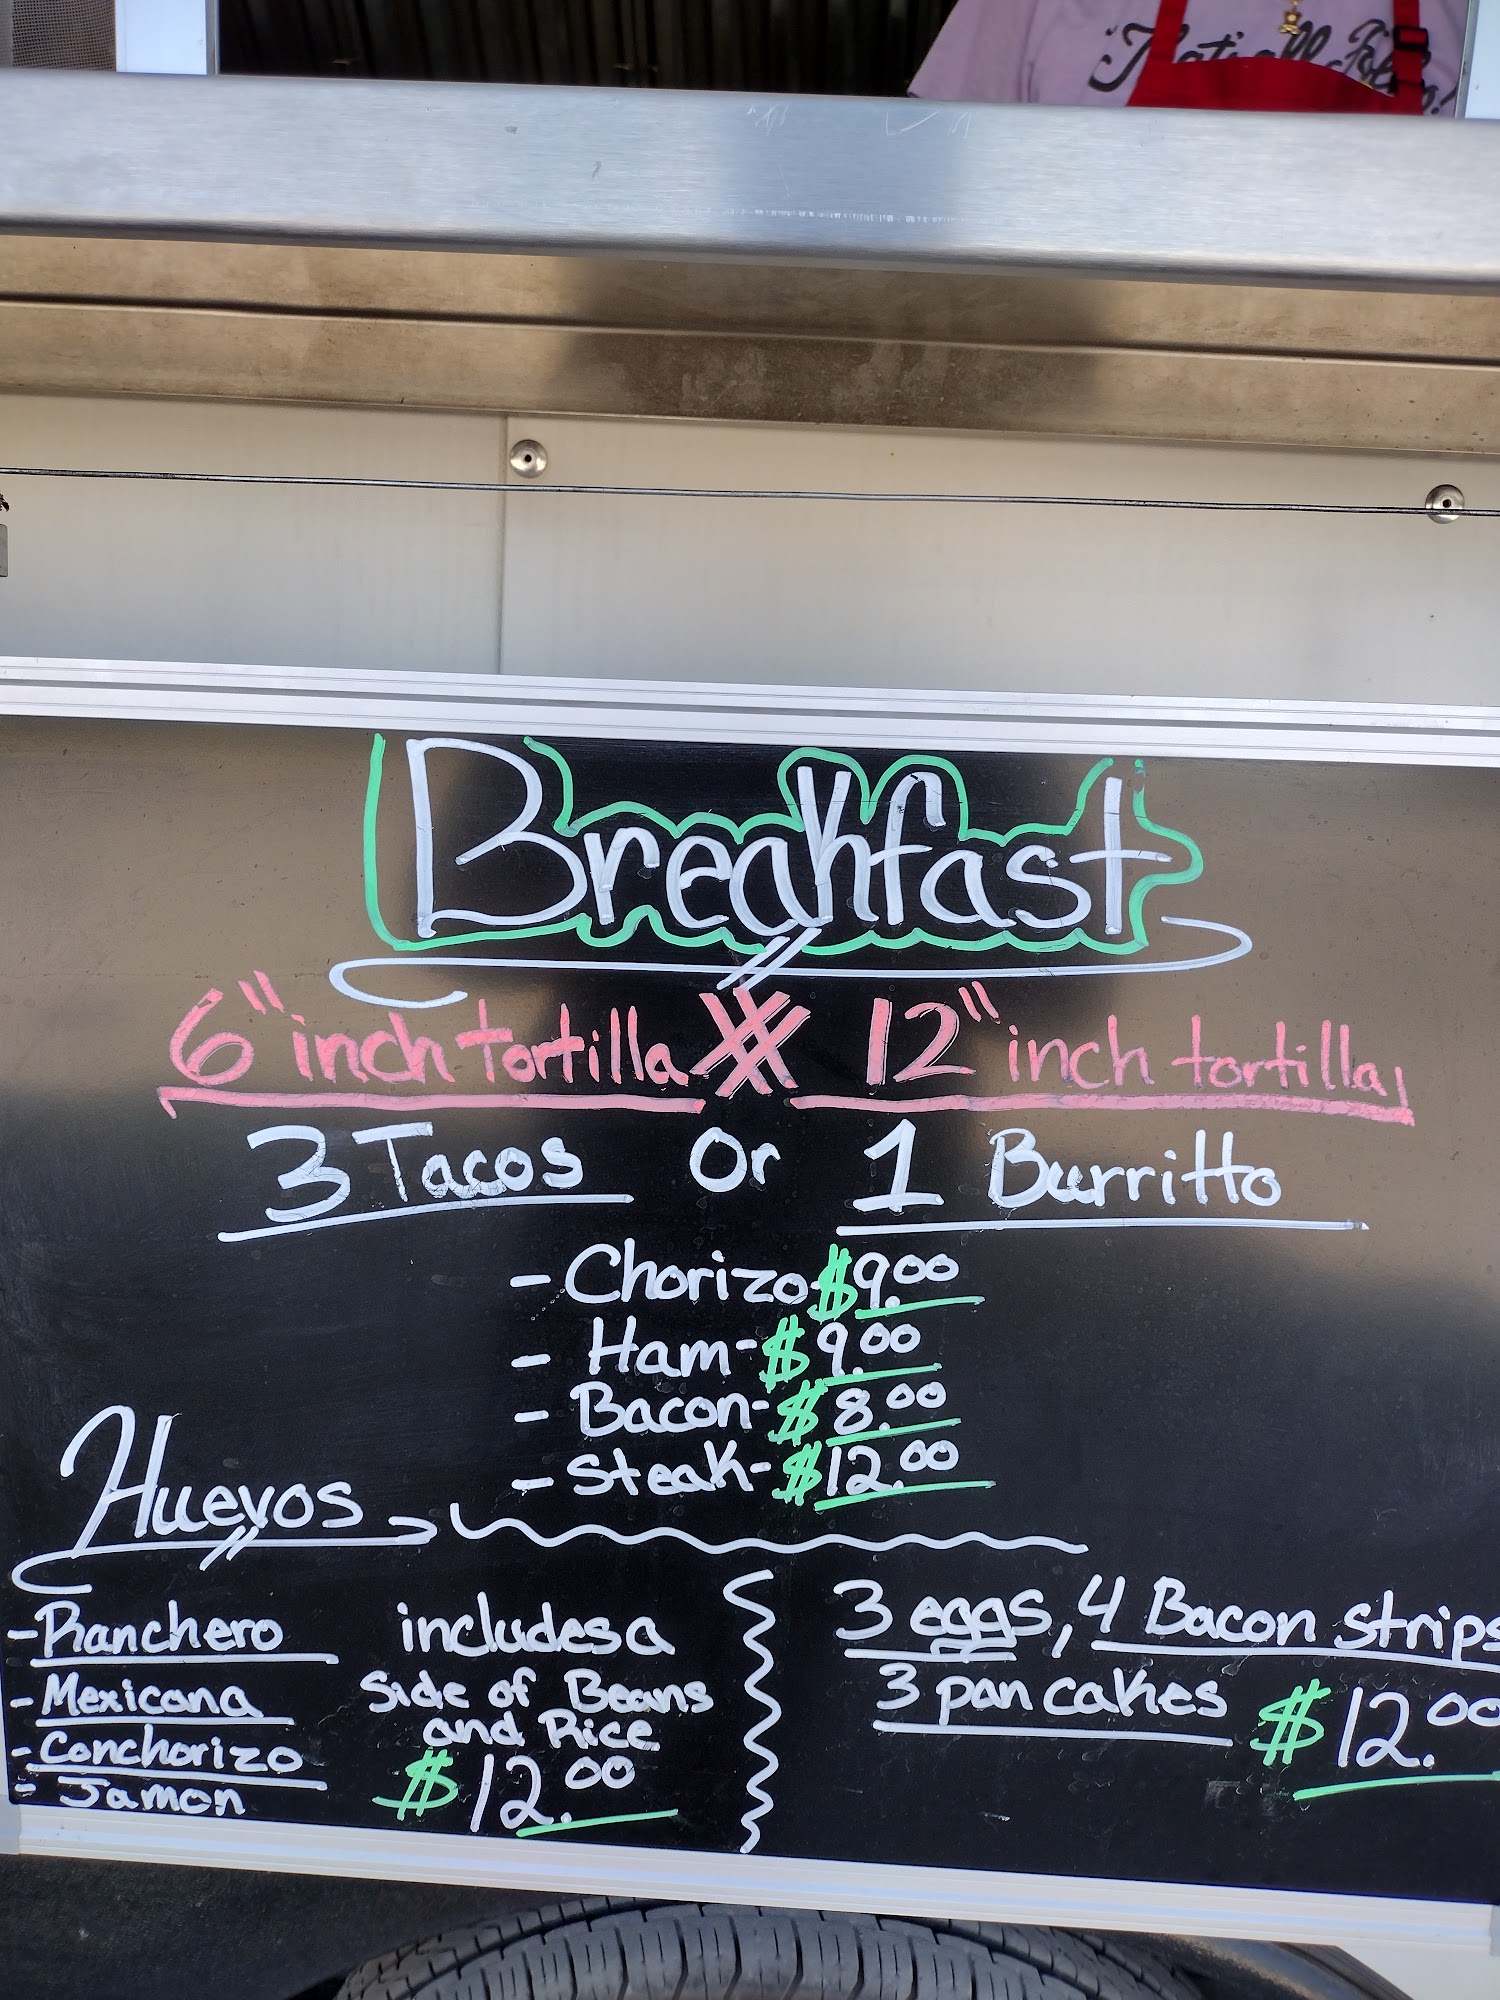 That's all Folks!
Breakfast
6" inch tortilla 12" inch tortilla
3 Tacos Or 1 Burritto
- Chorizo $9.00
- Ham - $9.00
- Bacon - $8.00
- Steak - $12.00
Huevos
- Ranchero
- Mexicana
- Conchorizo
- Jamon
includes a
Side of Beans
and Rice
$12.00
3 eggs, 4 Bacon strips
3 pancakes $12.00